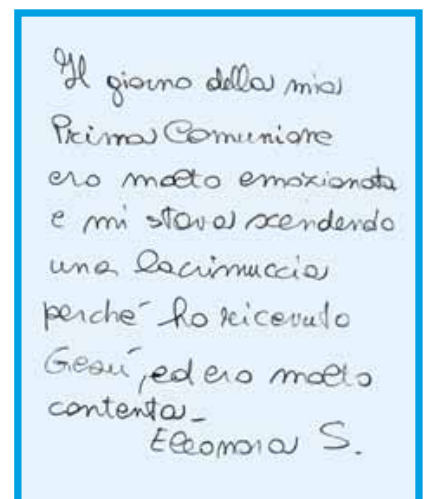 Il giorno della mia
Prima Comunione
ero molto emozionata
e mi stava scendendo
una lacrimuccia
perché ho ricevuto
Gesù, ed ero molto
contenta_
Eleonora S.